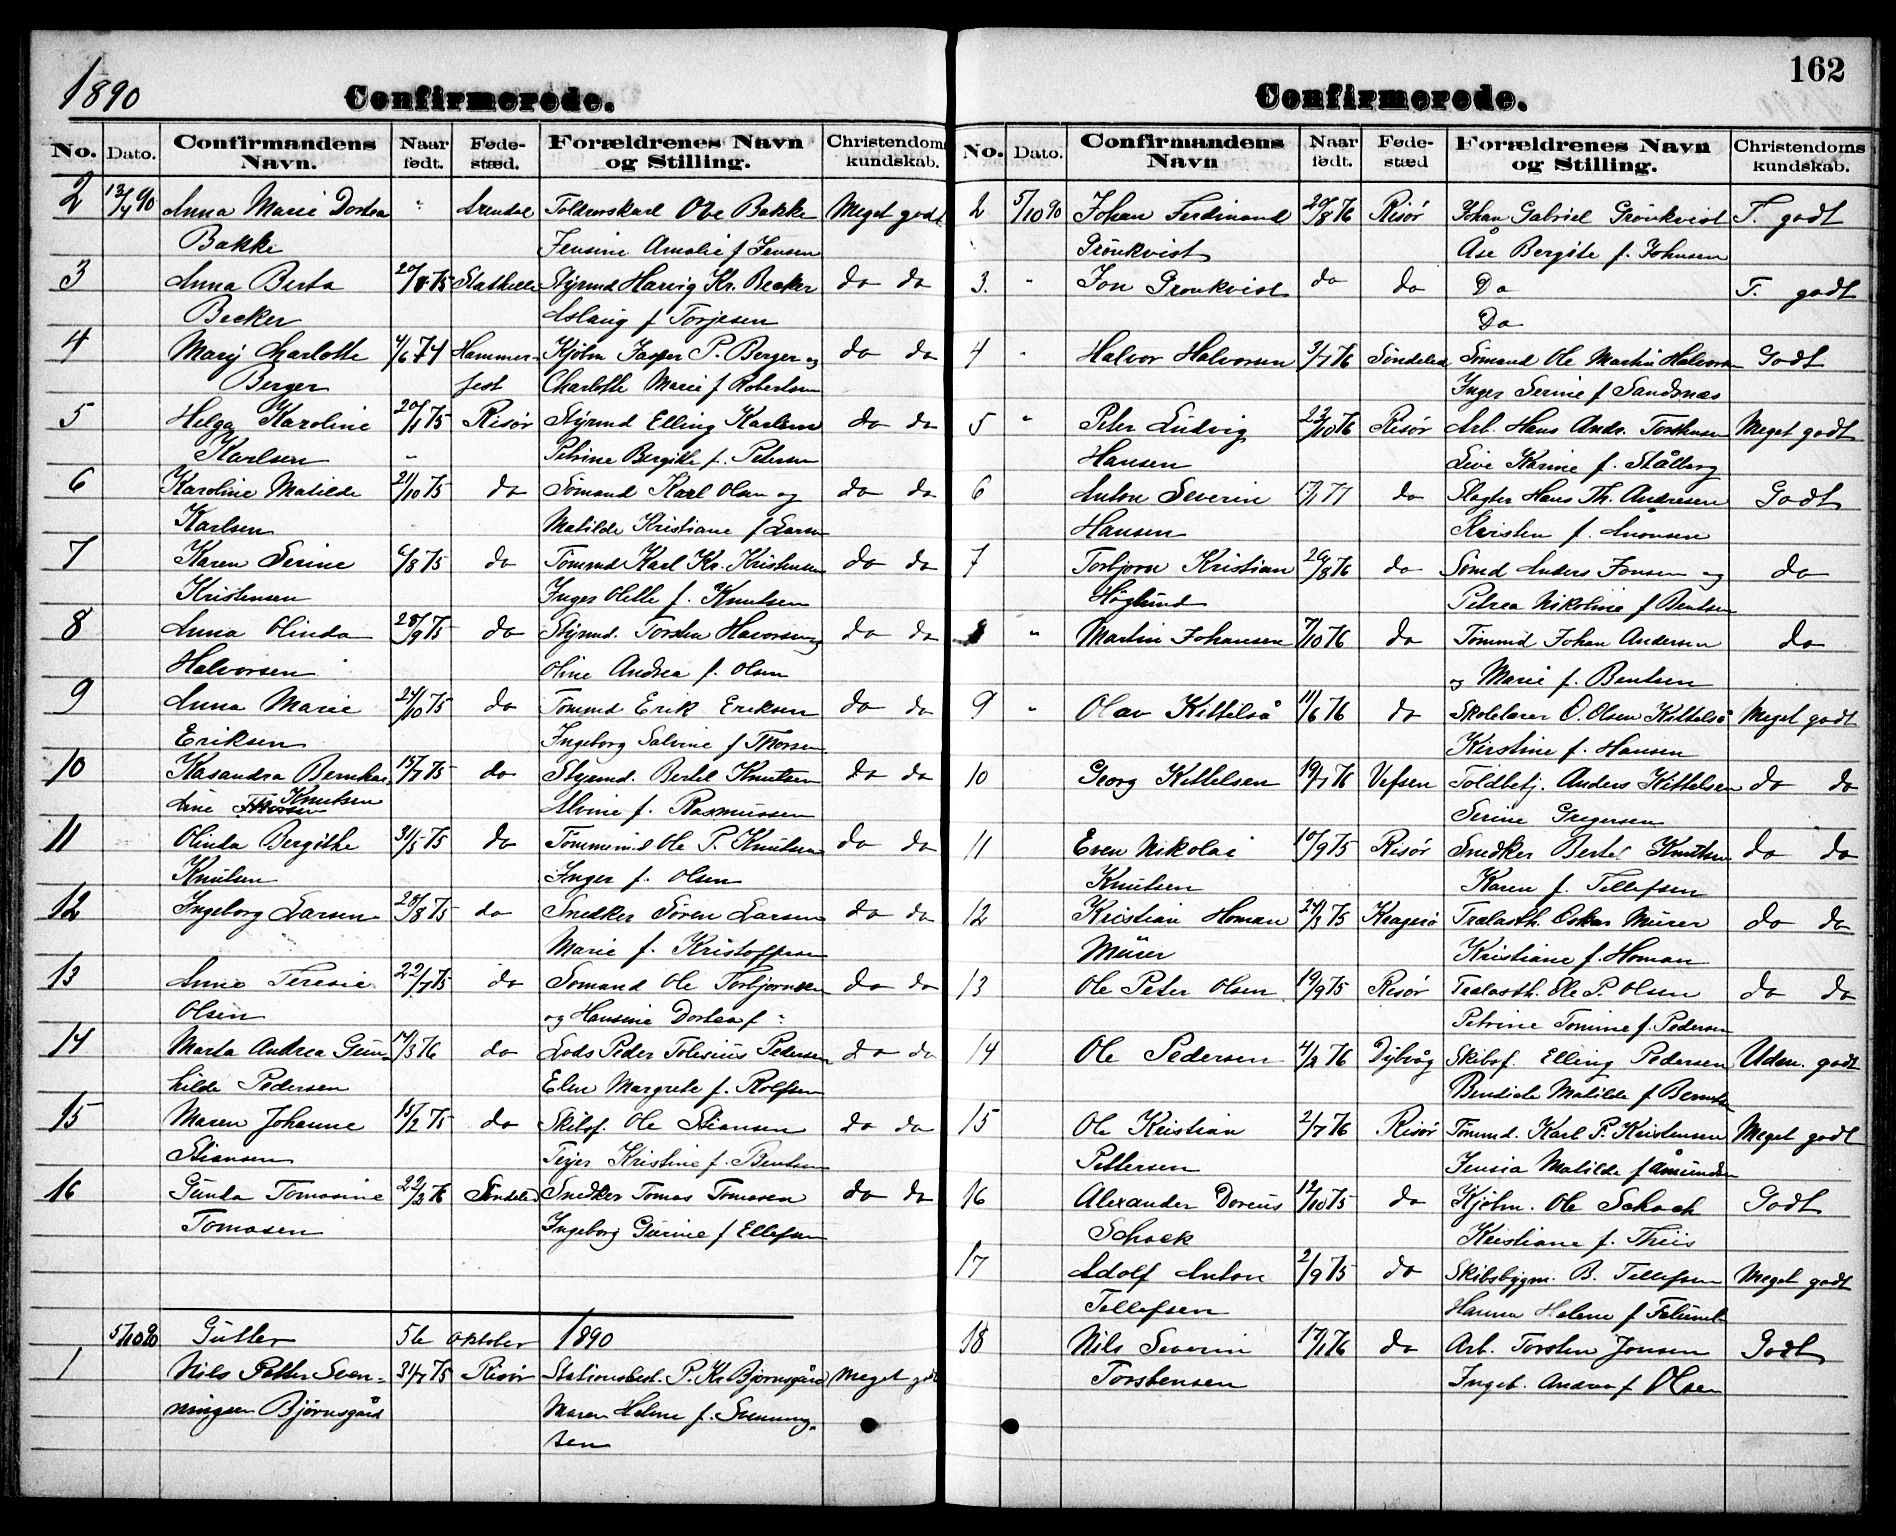 1890
Confirmerede.
No. Dato. Confirmandens Navn. Naar født. Føde-stæd. Forældrenes Navn og Stilling. Christendoms kundskab.
2 13/4 90 Anna Marie Dortea " Arendal Toldrorskarl Ove Bakke Meget godt
Bakke Jensine Amalie f Jensen
3 Anna Berta 20/8 75 Stathelle Styrmd Harvig Kr. Becker do do
Becker Aslaug f Torjesen
4 Mary Charlotte 4/6 74 Hammer- Kjøbm Jasper P. Berger og do do
Berger fest Charlotte Marie f Robertsen
5 Helga Karoline 20/1 75 Risør Styrmd Elling Karlsen do do
Karlsen " Petrine Bergitte f. Petersen
6 Karoline Matilde 21/10 75 do Sømand Karl Olsen og do do
Karlsen Matilde Kristiane f Larsen
7 Karen Serine 6/8 75 do Tømmd Karl Kr. Kristensen do do
Kristensen Inger Olette f. Knutsen
8 Anna Olinda 28/9 75 do Styrmd. Torsten Havorsen og do do
Halvorsen Oline Andrea f. Olsen
9 Anna Marie 24/10 75 do Tømmd Erik Eriksen do do
Eriksen Ingeborg Salvine f Thorsen
10 Kasandra Bernhar- 15/7 75 do Styrmd. Bertel Knutsen do do
dine Knutsen Alvine f. Rasmussen
11 Olinda Bergithe 31/5 75 do Tømmermd Ole P. Knutsen do do
Knutsen Inger f. Olsen
12 Ingeborg Larsen 28/8 75 do Snedker Søren Larsen do do
Marie f. Kristoffersen
13 Anne Teresie 22/7 75 do Sømand Ole Torbjørnsen do do
Olsen og Hansine Dortea f -
14 Marta Andrea Gun- 14/3 76 do Lods Peder Tolesius Pedersen do do
hilde Pedersen Elen Margrete f. Rolfsen
15 Maren Johanne 15/2 75 do Skibsf. Ole Stiansen do do
Stiansen Tejer Kristine f. Bentsen
16 Gunda Tomasine 22/3 76 Søndeled Snedker Tomas Tomasen do do
Tomasen Ingeborg Gurine f Ellefsen
5/10 90 Gutter 5te oktober 1890
1 Nils Petter Sven- 31/7 75 Risør Stationsbest. P. Kr Bjørnsgård Meget godt
ningsen Bjørnsgård Maren Helene f. Svenning-
sen
162
Confirmerede.
No. Dato. Confirmandens Navn Naar født. Føde-stæd Forældrenes Navn og Stilling. Christendoms kundskab.
2 5/10 90 Johan Ferdinand 20/8 76 Risør Johan Gabriel Grönkvist T. godt
Grönkvist Åse Bergite f. Johnsen
3. " Jon Grönkvist do do Do T. godt
Do
4 " Halvor Halvorsen 3/7 76 Søndeled Sømand Ole Martin Halvorsen Godt
Inger Serine f Sandsnæs
5 " Peter Ludvig 22/10 76 Risør Arb. Hans Andr. Torstensen Meget godt
Hansen Live Karine f. Stålberg
6 Anton Severin 17/1 77 do Slagter Hans Th. Andresen Godt
Hansen Kirsten f. Aronsen
7 Torbjørn Kristian 26/8 76 do Sømd Anders Jonsen og do
Høglund Petrea Nikoline f Bentsen
8 " Martin Johansen 7/10 76 do Tømmd Johan Andersen do
og Marie f. Bentsen
9 " Olav Kittelså 11/6 76 do Skolelærer O. Olsen Kittelså Meget godt
Kirstine f. Hansen
10 Georg Kittelsen 19/7 76 Vefsen Toldbetj. Anders Kittelsen do do
Serine Gregersen
11 Even Nikolai 10/9 75 Risør Snedker Bertel Knutsen do do
Knutsen Karen f. Tellefsen
12 Kristian Homan 24/3 75 Kragerø Trælasth. Oskar Mürer do do
Mürer Kristiane f. Homan
13 Ole Peter Olsen 19/9 75 Risør Trælasth. Ole P. Olsen do do
Petrine Tomine f. Pedersen
14 Ole Pedersen 4/2 76 Dybvåg Skibsf. Elling Pedersen Uden. godt
Bendicte Matilde f
15 Ole Kristian 2/7 76 Risør Tømmd. Karl P. Kristensen Meget godt
Pettersen Jensia Matilde f Åmundsen
16 Alexander Doreus 12/10 75 do Kjøbm. Ole Schack Godt
Schack Kristiane f. Thiis
17 Adolf Anton 2/9 75 do Skibsbygm. B. Tellefsen Meget godt
Tellefsen Hanna Helene f
18 Nils Severin 17/1 76 do Arb. Torsten Jonsen Godt
Torstensen Ingeb. Andrea f Olsen